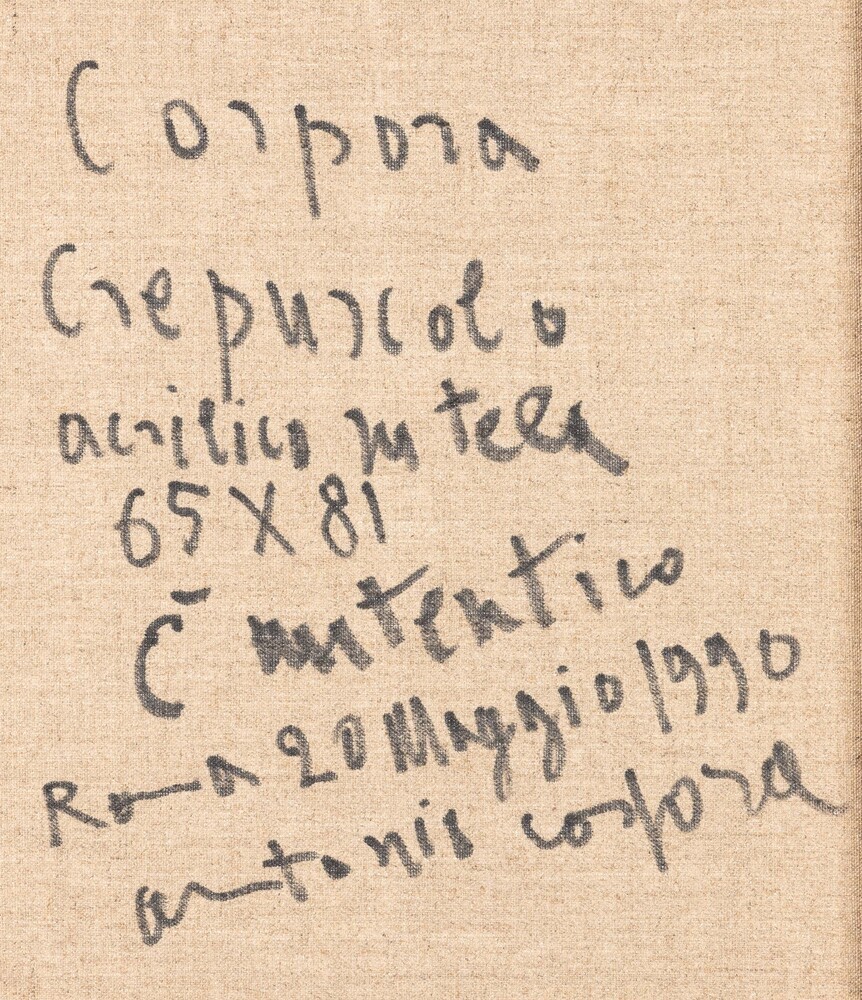 Corpora
Crepuscolo
acrilico su tela
65 X 81
È autentico
Roma 20 Maggio 1990
antonio corpora